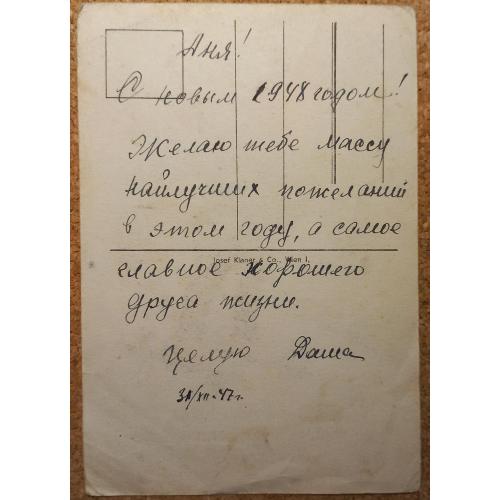 Аня!
С новым 1948 годом!
Желаю тебе массу
найлучших пожеланий
в этом году, а самое
главное хорошего
друга жизни.
Josef Klaner & Co., Wien I.
Целую Даша
31/XII-47 г.